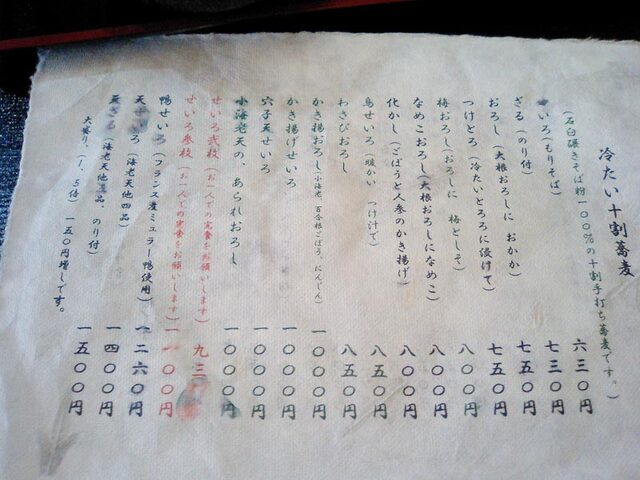 冷たい十割蕎麦
（石臼碾きそば粉一〇〇％の十割手打ち蕎麦です。）
せいろ（もりそば） 六三〇円
ざる（のり付） 七三〇円
おろし（大根おろしに おかか） 七五〇円
つけとろ（冷たいとろろに浸けて） 七五〇円
梅おろし（おろしに 梅としそ） 八〇〇円
なめこおろし（大根おろしになめこ） 八〇〇円
化かし（ごぼうと人参のかき揚げ） 八〇〇円
鳥せいろ（暖かい つけ汁で） 八五〇円
わさびおろし 八五〇円
かき揚おろし（小海老、百合根、ごぼう、にんじん） 一〇〇〇円
かき揚げせいろ 一〇〇〇円
穴子天せいろ 一〇〇〇円
小海老天の、あられおろし 一〇〇〇円
せいろ弐枚（お一人での定食をお願いします） 九三円
せいろ参枚（お一人での定食をお願いします） 一一〇〇円
鴨せいろ（フランス産ミュラー鴨使用） 一二六〇円
天せいろ（海老天他四品） 一四〇〇円
天ざる（海老天他四品、のり付） 一五〇〇円
大盛り、（１，５倍）一五〇円増しです。